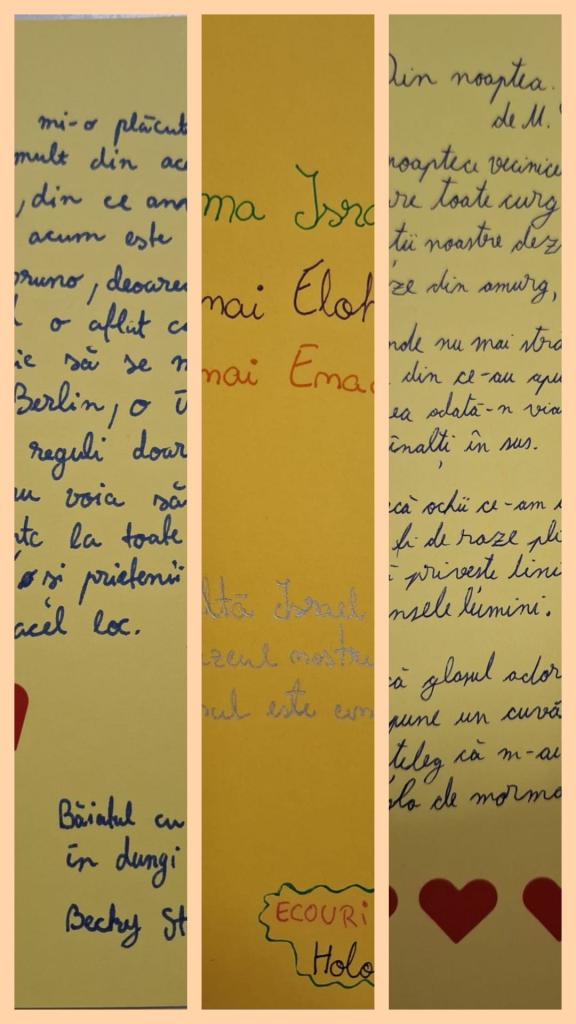 mi-o plăcut
mult din ac
, din ce am
acum este
runo, deoare
o aflat c
ic să se n
Berlin, o î
reguli doar
u voia să
tc la toate
și prietenii
acel loc.
Băiatul cu
în dungi
Becky St
ma Isra
nai Eloh
nai Emac
ltă Israel
zeul nostru
ul este un
ECOURI
Holo
Din noaptea
de M.
noaptea vecinice
re toate curg
tii noastre dez
ze din amurg,
nde nu mai stră
din ce-au apu
ea odată-n via
înalți în sus.
că ochii ce-am i
fi de raze pli
privește lini
nsele lumini.
că glasul ador
pune un cuvâ
țeleg că m-au
olo de morma